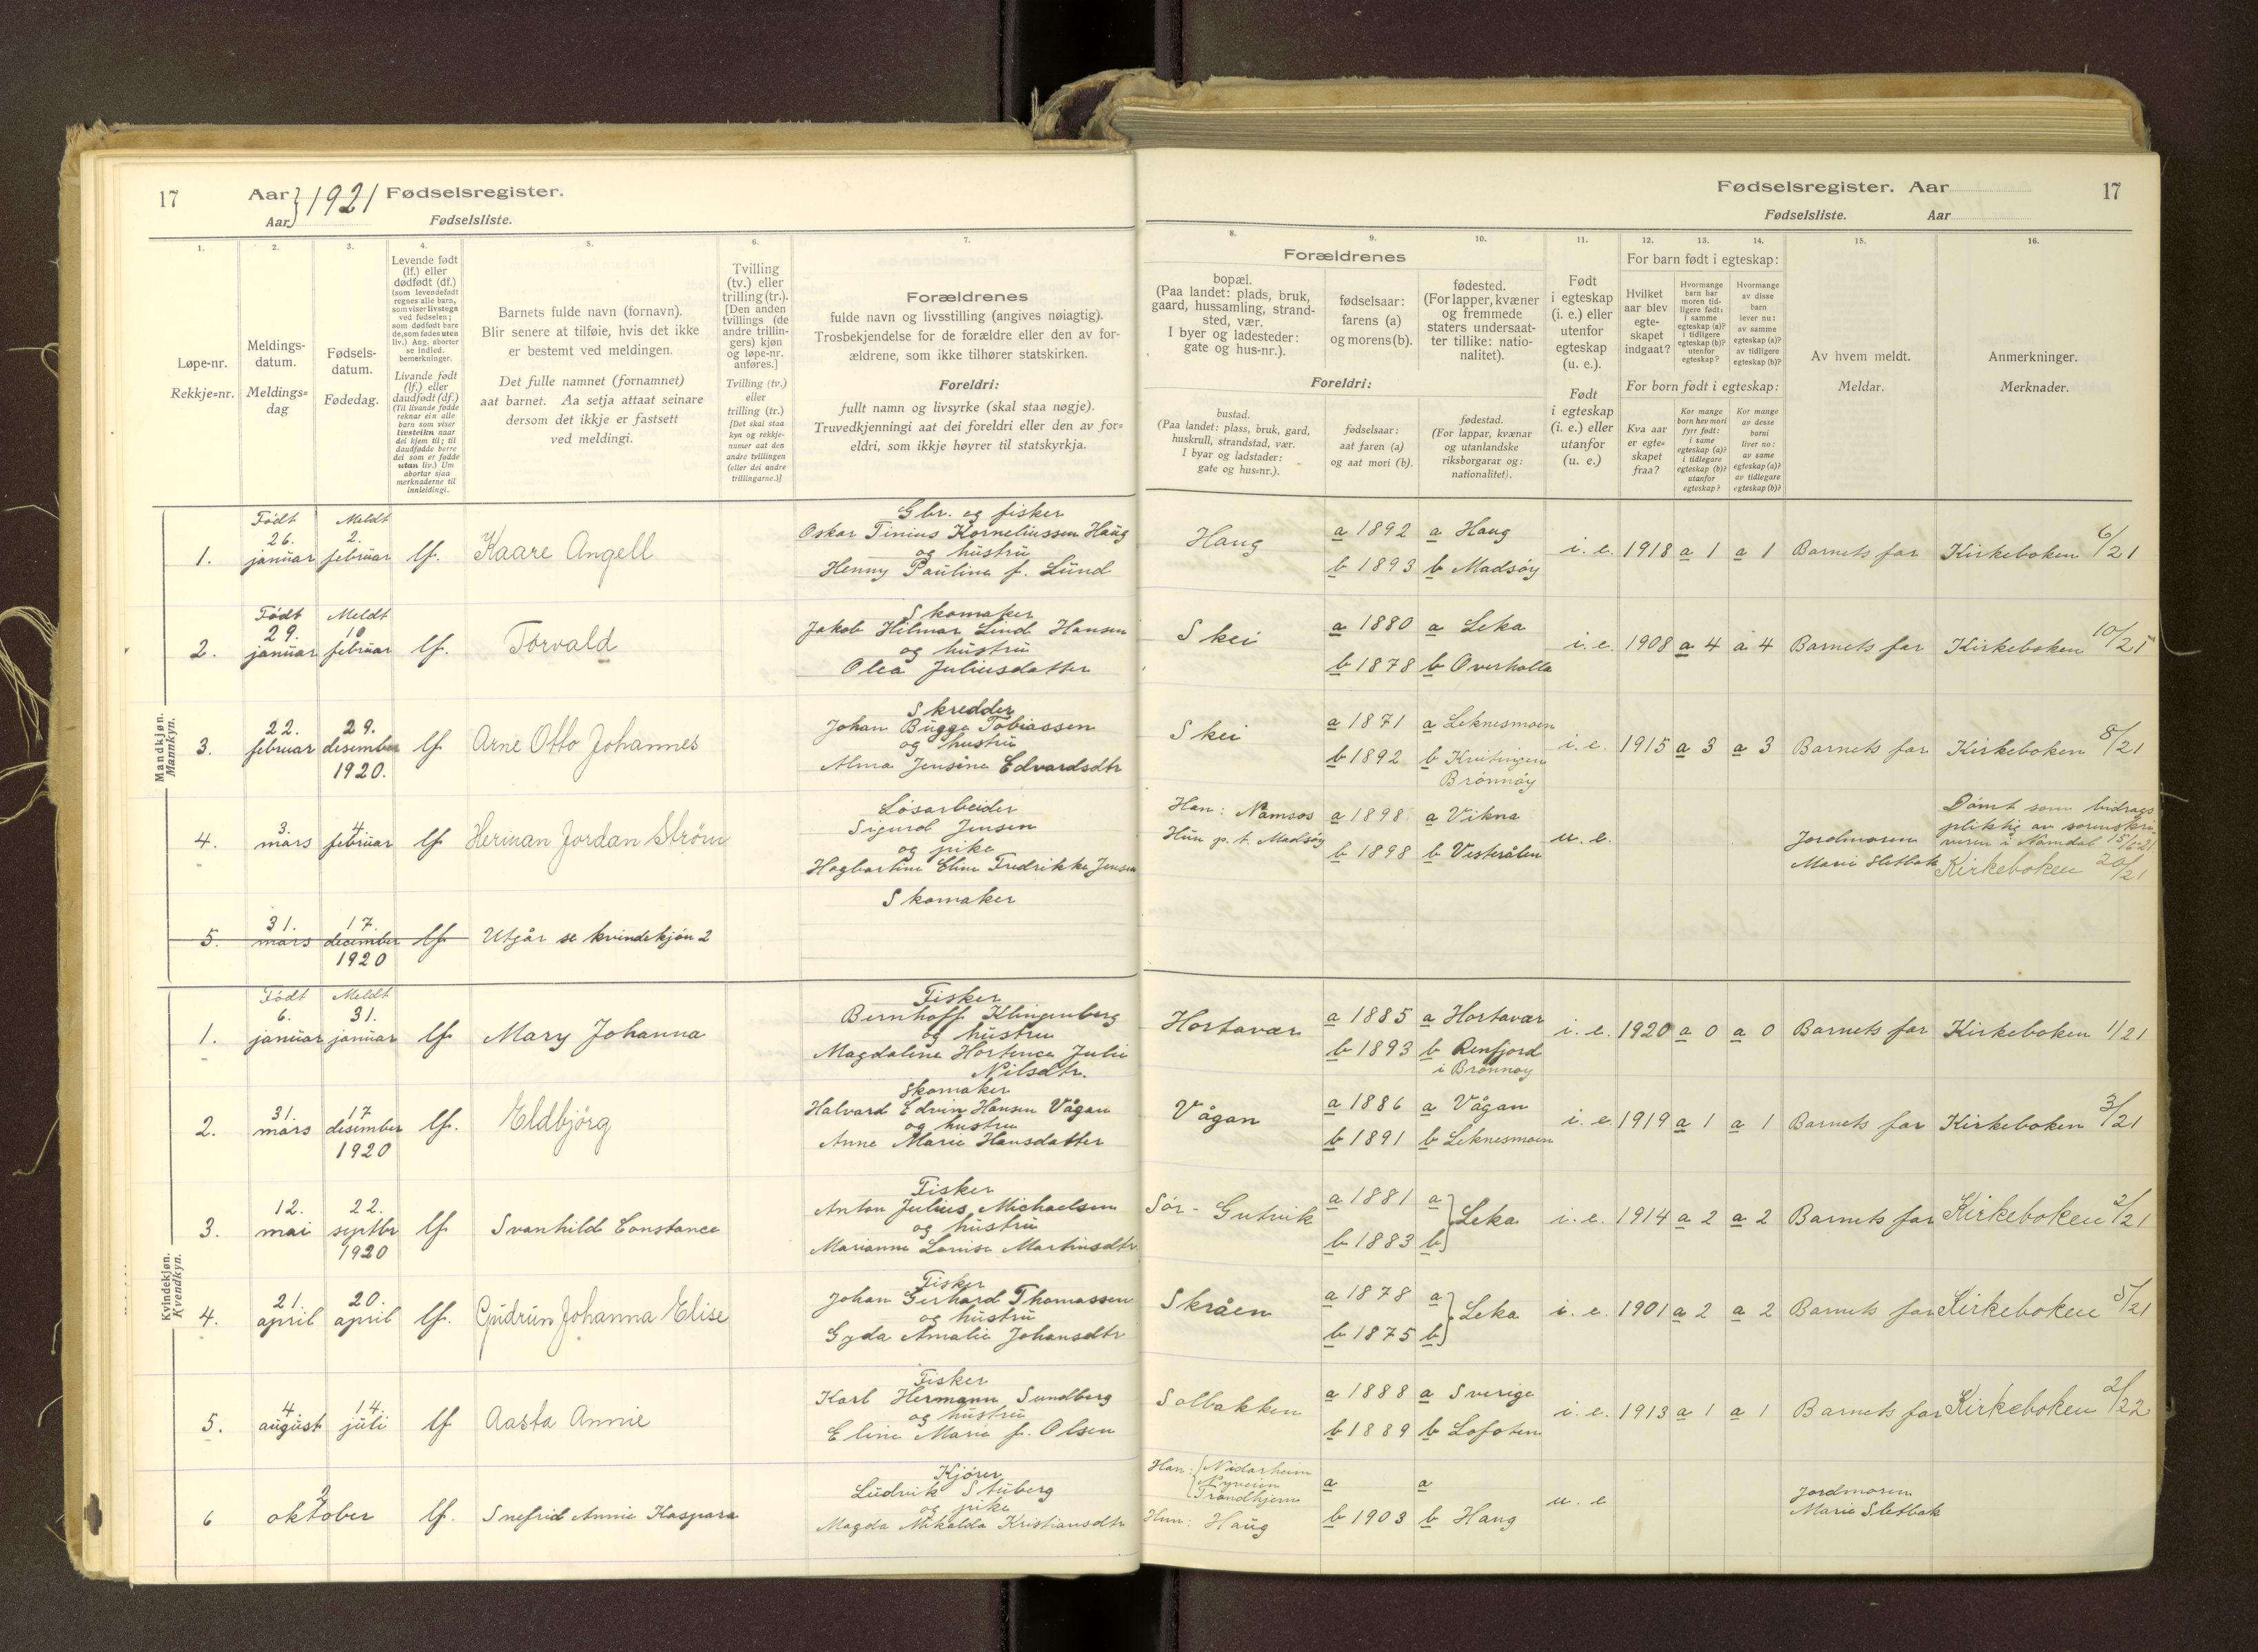 17
Aar } 1921 Fødselsregister.
Aar } Fødselsliste.
Fødselsregister. Aar
17
Fødselsliste. Aar
1.
Løpe-nr.
Rekkje=nr.
2.
Meldings-
datum.
Meldings=
dag
3.
Fødsels-
datum.
Fødedag.
4.
Levende født
(lf.) eller
dødfødt (df.)
(som levendefødt
regnes alle barn,
som viser livstegn
ved fødselen;
som dødfødt bare
de, som fødes uten
liv.) Ang. aborter
se indled.
bemerkninger.
Livande født
(lf.) eller
daudfødt (df.)
(Til livande fødde
reknar ein alle
barn som viser
livsteikn naar
dei kjem til; til
daudfødde berre
dei som er fødde
utan liv.) Um
abortar sjaa
merknaderne til
innleidingi.
5.
Barnets fulde navn (fornavn).
Blir senere at tilføie, hvis det ikke
er bestemt ved meldingen.
Det fulle namnet (fornamnet)
aat barnet. Aa setja attaat seinare
dersom det ikkje er fastsett
ved meldingi.
6.
Tvilling
(tv.) eller
trilling (tr.).
[Den anden
tvillings (de
andre trillin-
gers) kjøn
og løpe-nr.
anføres.]
Tvilling (tv.)
eller
trilling (tr.)
[Det skal staa
kyn og rekkje-
numer aat den
andre tvillingen
(eller dei andre
trillingarne.)]
7.
Forældrenes
fulde navn og livsstilling (angives nøiagtig).
Trosbekjendelse for de forældre eller den av for-
ældrene, som ikke tilhører statskirken.
Foreldri:
fullt namn og livsyrke (skal staa nøgje).
Truvedkjenningi aat dei foreldri eller den av for=
eldri, som ikkje høyrer til statskyrkja.
Forældrenes
8.
bopæl.
(Paa landet: plads, bruk,
gaard, hussamling, strand-
sted, vær.
I byer og ladesteder:
gate og hus-nr.).
9.
fødselsaar:
farens (a)
og morens (b).
10.
fødested.
(For lapper, kvæner
og fremmede
staters undersaat-
ter tillike: natio-
nalitet).
Foreldri:
bustad.
(Paa landet: plass, bruk, gard,
huskrull, strandstad, vær.
I byar og ladstader:
gate og hus=nr.).
fødselsaar:
aat faren (a)
og aat mori (b).
fødestad.
(For lappar, kvænar
og utanlandske
riksborgarar og:
nationalitet).
11.
Født
i egteskap
(i. e.) eller
utenfor
egteskap
(u. e.).
Født
i egteskap
(i. e.) eller
utanfor
(u. e.)
12.
13.
14.
For barn født i egteskap:
Hvilket
aar blev
egte-
skapet
indgaat?
Hvormange
barn har
moren tid-
ligere født:
i samme
egteskap (a)?
i tidligere
egteskap (b)?
utenfor
egteskap?
Hvormange
av disse
barn
lever nu:
av samme
egteskap (a)?
av tidligere
egteskap (b)?
For born født i egteskap:
Kva aar
er egte=
skapet
fraa?
Kor mange
born hev mori
fyrr født:
i same
egteskap (a)?
i tidlegare
egteskap (b)?
utanfor
egteskap?
Kor mange
av desse
borni
liver no:
av same
egteskap (a)?
av tidlegare
egteskap (b)?
15.
Av hvem meldt.
Meldar.
16.
Anmerkninger.
Merknader.
Mandkjøn.
Mannkyn.
Født Meldt
1. 26. januar 2. februar lf. Kaare Angell
Gbr. og fisker
Oskar Tinius Korneliussen Haug
og hustru
Henny Pauline f. Lund
Haug a 1892 a Haug
b 1893 b Madsøy
i. e. 1918 a 1 a 1 Barnets far Kirkeboken 6/21
Født Meldt
2. 29. januar 10 februar lf. Torvald
Skomaker
Jakob Hilmar Lind Hansen
og hustru
Olea Juliusdatter
Skei a 1880 a Leka
b 1878 b Overhalla
i. e. 1908 a 4 a 4 Barnets far Kirkeboken 10/21
3. 22. februar 29. desember 1920. lf Arne Otto Johannes
Skredder
Johan Bugge Tobiassen
og hustru
Alma Jensine Edvardsdtr
Skei a 1871 a Leknesmoen
b 1892 b
Brönnöy
i. e. 1915 a 3 a 3 Barnets far Kirkeboken 8/21
4. 3. mars 4. februar lf Herman Jordan Strøm
Løsarbeider
Sigurd Jensen
og pike
Hagbartine Eline Fredrikke Jensen
Han: Namsos a 1898 a Vikna
Hun p. t. Madsøy b 1898 b Vesterålen
u. e.
Jordmoren
Marie Sletbak
Dömt som bidrags
pliktig av sorenskri
veren i Namdal 15/6-21
Kirkeboken 20/21
5. 31. mars 17. december 1920 lf Utgår se kvindekjön 2
Skomaker
Kvindekjøn.
Kvendkyn.
Født Meldt
1. 6. januar 31. januar lf Mary Johanna
Fisker
Bernhoff Klingenberg
og hustru
Magdalena Hortence Julie
Nilsdtr.
Hortavær a 1885 a Hortavær
b 1893 b Renfjord
i Brønnøy
i. e. 1920 a 0 a 0 Barnets far Kirkeboken 1/21
2. 31. mars 17 desember 1920 lf. Eldbjörg
Skomaker
Halvard Edvin Hansen Vågan
og hustru
Anne Marie Hansdatter
Vågan a 1886 a Vågan
b 1891 b Leknesmoen
i. e. 1919 a 1 a 1 Barnets far Kirkeboken 3/21
3. 12. mai 22. septbr 1920 lf Svanhild Constance
Fisker
Anton Julius Michaelsen
og hustru
Marianne Lovise Martinsdtr
Sör-Gutvik a 1881 a
b 1883 b } Leka
i. e. 1914 a 2 a 2 Barnets far Kirkeboken 2/21
4. 21. april 20. april lf. Gudrun Johanna Elise
Fisker
Johan Gerhard Thomassen
og hustru
Gyda Amalie Johansdtr
Skråen a 1878 a
b 1875 b } Leka
i. e. 1901 a 2 a 2 Barnets far Kirkeboken 5/21
5. 4 august 14. juli lf Aasta Annie
Fisker
Karl Hermann Sundberg
og hustru
Eline Marie f. Olsen
Solbakken a 1888 a Sverige
b 1889 b Lofoten
i. e. 1913 a 1 a 1 Barnets far Kirkeboken 2/22
6 2 oktober lf. Snefrid Annie Kaspara
Kjörer
Ludvik Stuberg
og pike
Magda Mikalda Kristiansdtr
Han: Nidarheim
Nyveien
Trondhjem
Hun: Haug
a a
b 1903 b Haug
u. e
Jordmoren
Marie Sletbak